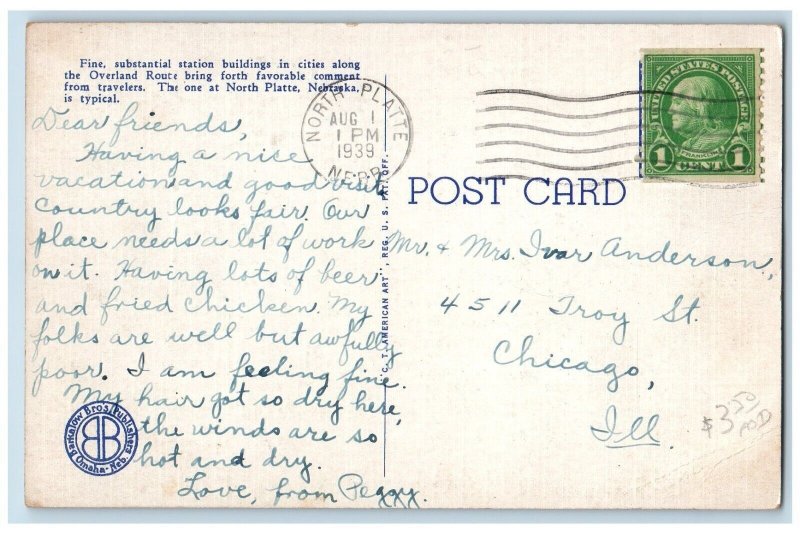 Fine, substantial station buildings in cities along
the Overland Route bring forth favorable comment
from travelers. The one at North Platte, Nebraska,
is typical.
Dear friends,
Having a nice
vacation and good visit
Country looks fair. Our
place needs a lot of work
on it. Having lots of beer
and fried chicken. My
folks are well but awfully
poor. I am feeling fine.
My hair got so dry here,
the winds are so
hot and dry.
Love, from Peggy.
XXX
Barkalow Bros. Publishers
Omaha-Neb.
NORTH PLATTE
AUG 1
1 PM
1939
NEBR.
"C. T. AMERICAN ART", REG. U. S. PAT. OFF.
UNITED STATES POSTAGE
FRANKLIN
1 CENT 1
POST CARD
Mr. & Mrs. Ivar Anderson,
4511 Troy St.
Chicago,
Ill.
$3.50